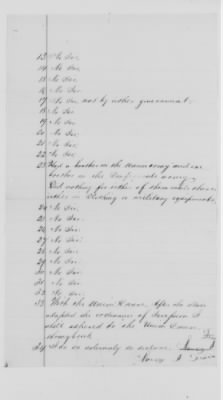 13 No Sir
14 No Sir
15 No Sir
16 No Sir
17 No Sir not by either government
18 No Sir
19 No Sir
20 No Sir
21 No Sir
22 No Sir
23 Had a brother in the Union army and one
brother in the
Did nothing for either of them
either in Clothing or military equipments
24 No Sir
25 No Sir
26 No Sir
27 No Sir
28 No Sir
29 No Sir
30 No Sir
31 No Sir
32 No Sir
33 With the Union Cause. After the State
adopted the ordinance of Secession I
still adhered to the Union Cause
34 I do so solemnly declare